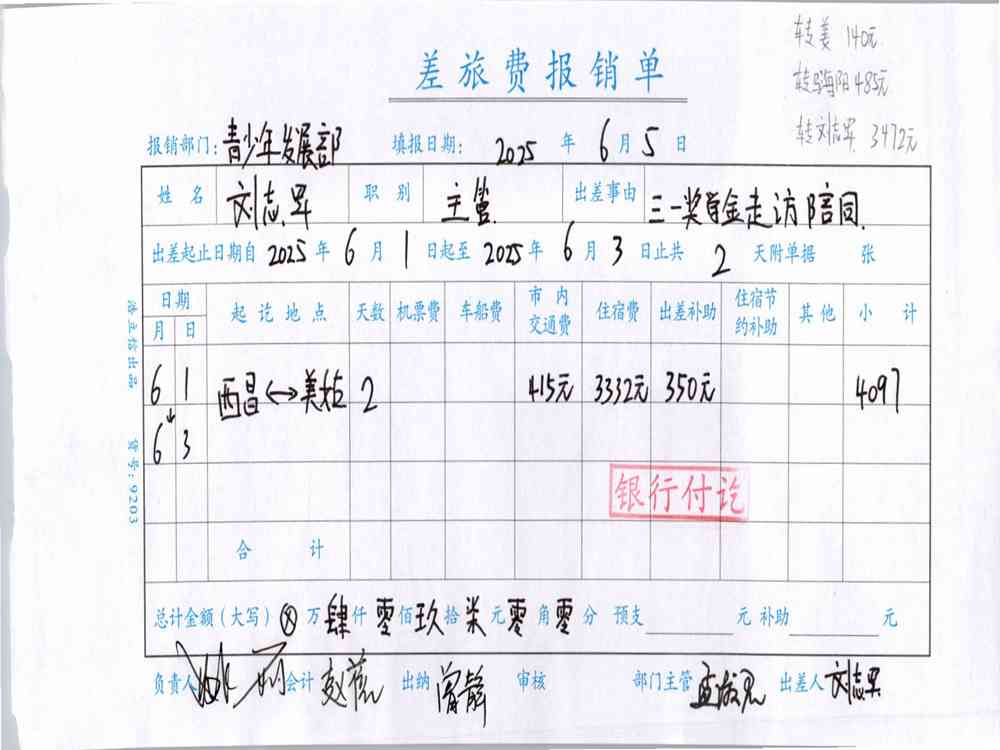 转姜 140元
转海阳 485元
转刘志 3472元
差旅费报销单
报销部门：青少年发展部 填报日期： 2025 年 6 月 5 日
姓名 刘志 职别 主管 出差事由 三一奖学金走访陪同
出差起止日期自 2025 年 6 月 1 日起至 2025 年 6 月 3 日止共 2 天附单据 张
日期 起讫地点 天数 机票费 车船费 市内交通费 住宿费 出差补助 住宿节约补助 其他 小计
月 日
6 1 西昌↔美姑 2 415元 3332元 350元 4097
↓
6 3
银行付讫
合计
总计金额（大写）ⓧ 万 肆 仟 零 佰 玖 拾 柒 元 零 角 零 分 预支 元 补助 元
负责人 会计 赵 出纳 曾静 审核 部门主管 出差人 刘志
出品 货号：9203